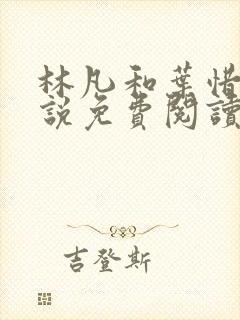 林凡和葉惜
說免費閱讀
吉登斯